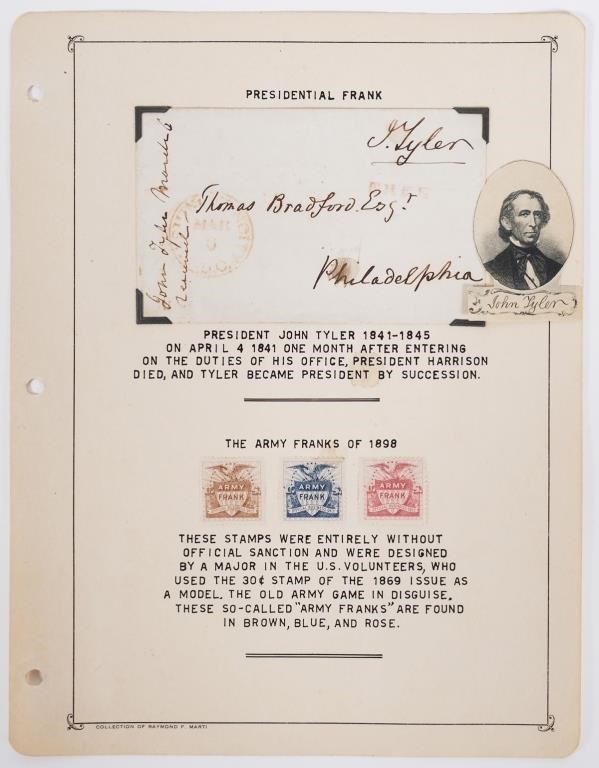 PRESIDENTIAL FRANK
J. Tyler
John Tyler March 6
FREE
MAR
Thomas Bradford Esqr
Philadelphia
John Tyler
PRESIDENT JOHN TYLER 1841-1845
ON APRIL 4 1841 ONE MONTH AFTER ENTERING
ON THE DUTIES OF HIS OFFICE, PRESIDENT HARRISON
DIED, AND TYLER BECAME PRESIDENT BY SUCCESSION.
THE ARMY FRANKS OF 1898
ARMY FRANK
ARMY FRANK
ARMY FRANK
THESE STAMPS WERE ENTIRELY WITHOUT
OFFICIAL SANCTION AND WERE DESIGNED
BY A MAJOR IN THE U.S. VOLUNTEERS, WHO
USED THE 30¢ STAMP OF THE 1869 ISSUE AS
A MODEL. THE OLD ARMY GAME IN DISGUISE.
THESE SO-CALLED "ARMY FRANKS" ARE FOUND
IN BROWN, BLUE, AND ROSE.
COLLECTION OF RAYMOND F. MARTI